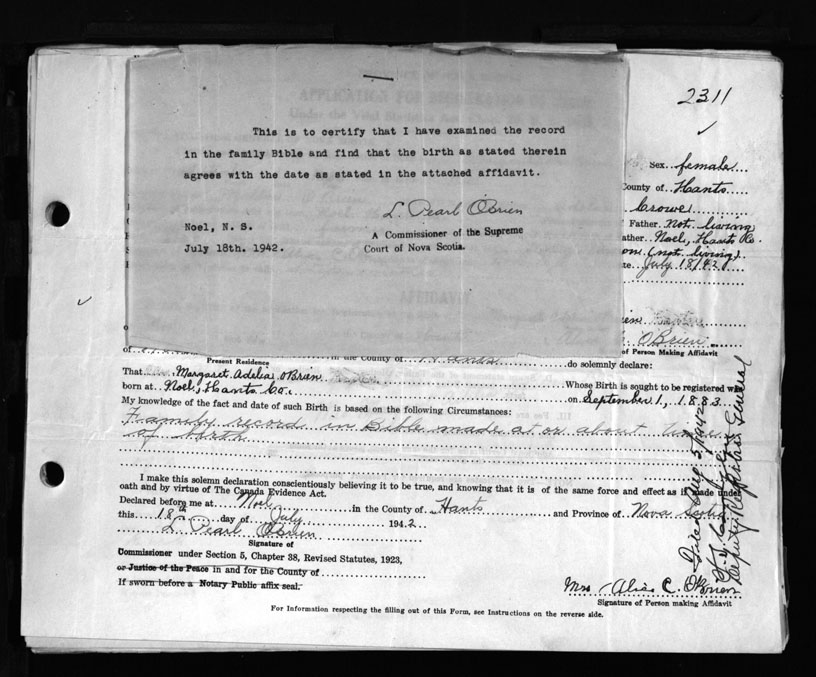 2311
This is to certify that I have examined the record
in the family Bible and find that the birth as stated therein
agrees with the date as stated in the attached affidavit.
L. Pearl O'Brien
Noel, N. S.
A Commissioner of the Supreme
July 18th. 1942.
Court of Nova Scotia.
Sex female
County of Hants
Crowe
Father not living
ather Noel, Hants Co.
(not living)
te July 18/42
O'Brien
of Person Making Affidavit
Present Residence
in the County of Hants do solemnly declare:
That Margaret Adelia O'Brien Whose Birth is sought to be registered was
born at Noel, Hants Co. on September 1, 1883
My knowledge of the fact and date of such Birth is based on the following Circumstances:
Family record in Bible made at or about time
of birth
I make this solemn declaration conscientiously believing it to be true, and knowing that it is of the same force and effect as if made under
oath and by virtue of The Canada Evidence Act.
Declared before me at Noel in the County of Hants and Province of Nova Scotia
this 18th day of July 1942
L. Pearl O'Brien
Signature of
Commissioner under Section 5, Chapter 38, Revised Statutes, 1923,
or Justice of the Peace in and for the County of
If sworn before a Notary Public affix seal.
Mrs Alice C. O'Brien
Signature of Person making Affidavit
For Information respecting the filling out of this Form, see Instructions on the reverse side.
Filed Aug 5/1942
Deputy Registrar General